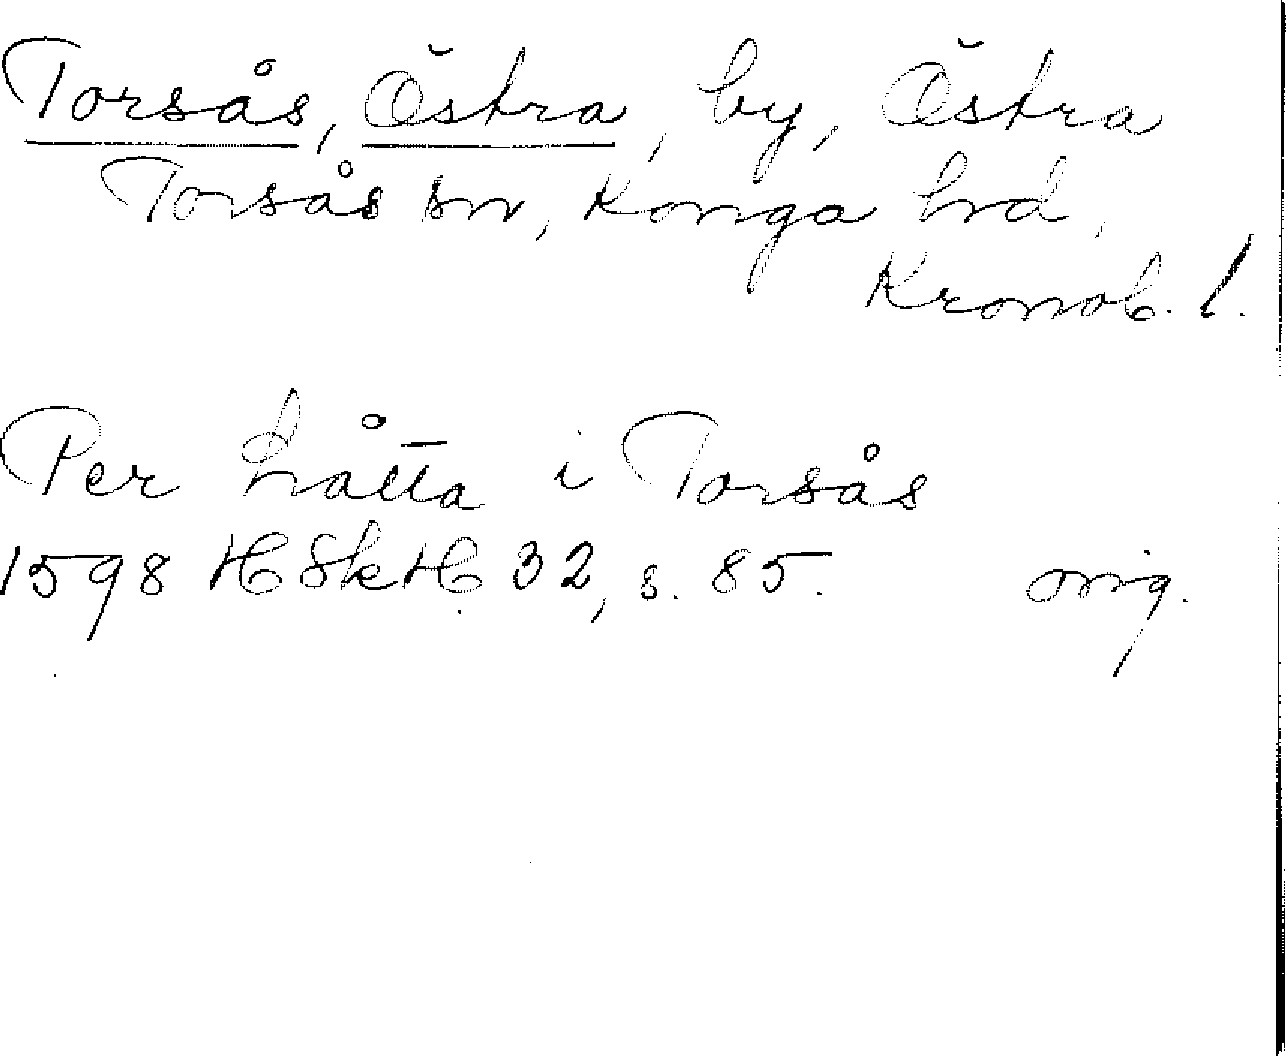 Torsås, Östra, by, Östra
Torsås sn, Konga hrd,
Kronob. l.
Per Låtta i Torsås
1598 HSkH 32, s. 85. orig.